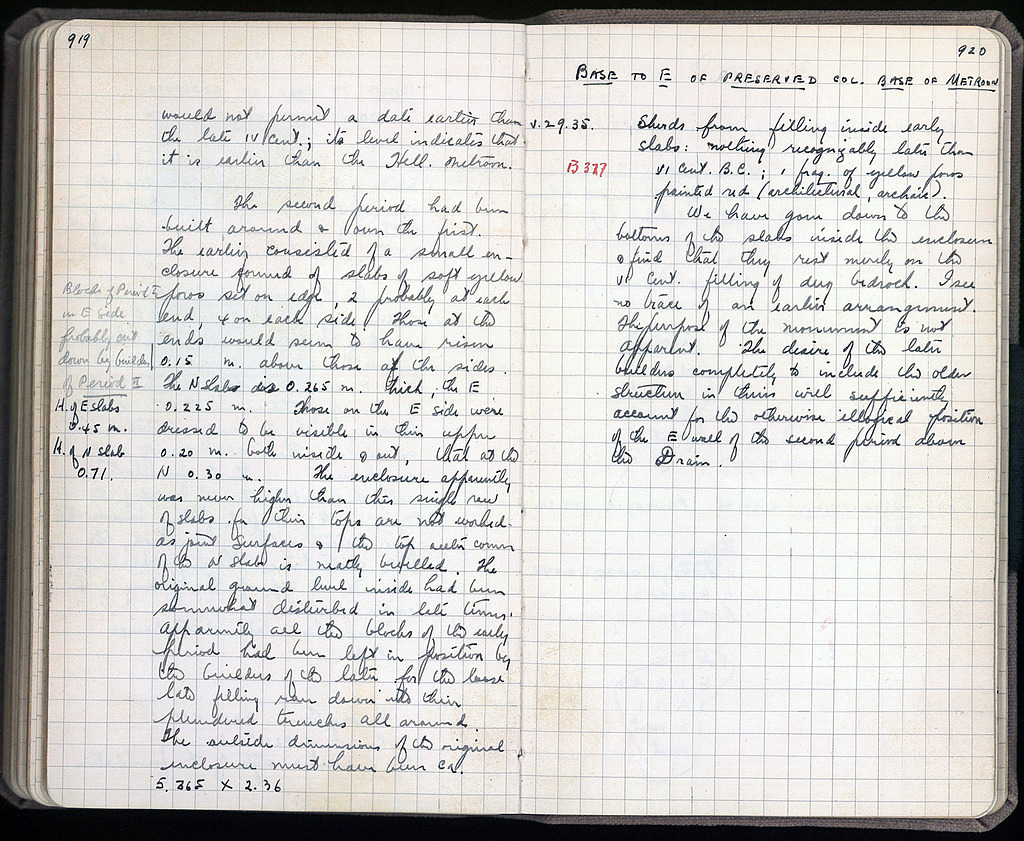 919
would not permit a date earlier than
the late IV Cent.; its level indicates that
it is earlier than the Hell. Metroon.
The second period had been
built around & over the first.
The earlier consisted of a small en-
closure formed of slabs of soft yellow
poros set on edge, 2 probably at each
end, 4 on each side. Those at the
ends would seem to have risen
0.15 m. above those of the sides.
The N slabs are 0.265 m. thick, the E
0.225 m. Those on the E side were
dressed to be visible in their upper
0.20 m. both inside & out, that at the
N 0.30 m. The enclosure apparently
was never higher than this single row
of slabs for their tops are not worked
as joint surfaces & the top outer corner
of the N slabs is neatly bevelled. The
original ground level inside had been
somewhat disturbed in late times.
Apparently all the blocks of the early
period had been left in position by
the builders of the later for the loose
late filling ran down into their
plundered trenches all around.
The outside dimensions of the original
enclosure must have been ca.
5.265 x 2.36
Blocks of Period I
on E side
probably cut
down by builders
of Period II
H. of E slabs
0.45 m.
H. of N slab
0.71.
920
BASE TO E OF PRESERVED COL. BASE OF METROON
V.29.35. Sherds from filling inside early
slabs: nothing recognizably later than
B 327 VI cent. B.C.; 1 frag. of yellow poros
painted red (architectural, archaic).
We have gone down to the
bottoms of the slabs inside the enclosure
& find that they rest merely on the
VI cent. filling of dug bedrock. I see
no trace of an earlier arrangement.
The purpose of the monument is not
apparent. The desire of the later
builders completely to include the older
structure in theirs will sufficiently
account for the otherwise illogical position
of the E wall of the second period above
the Drain.